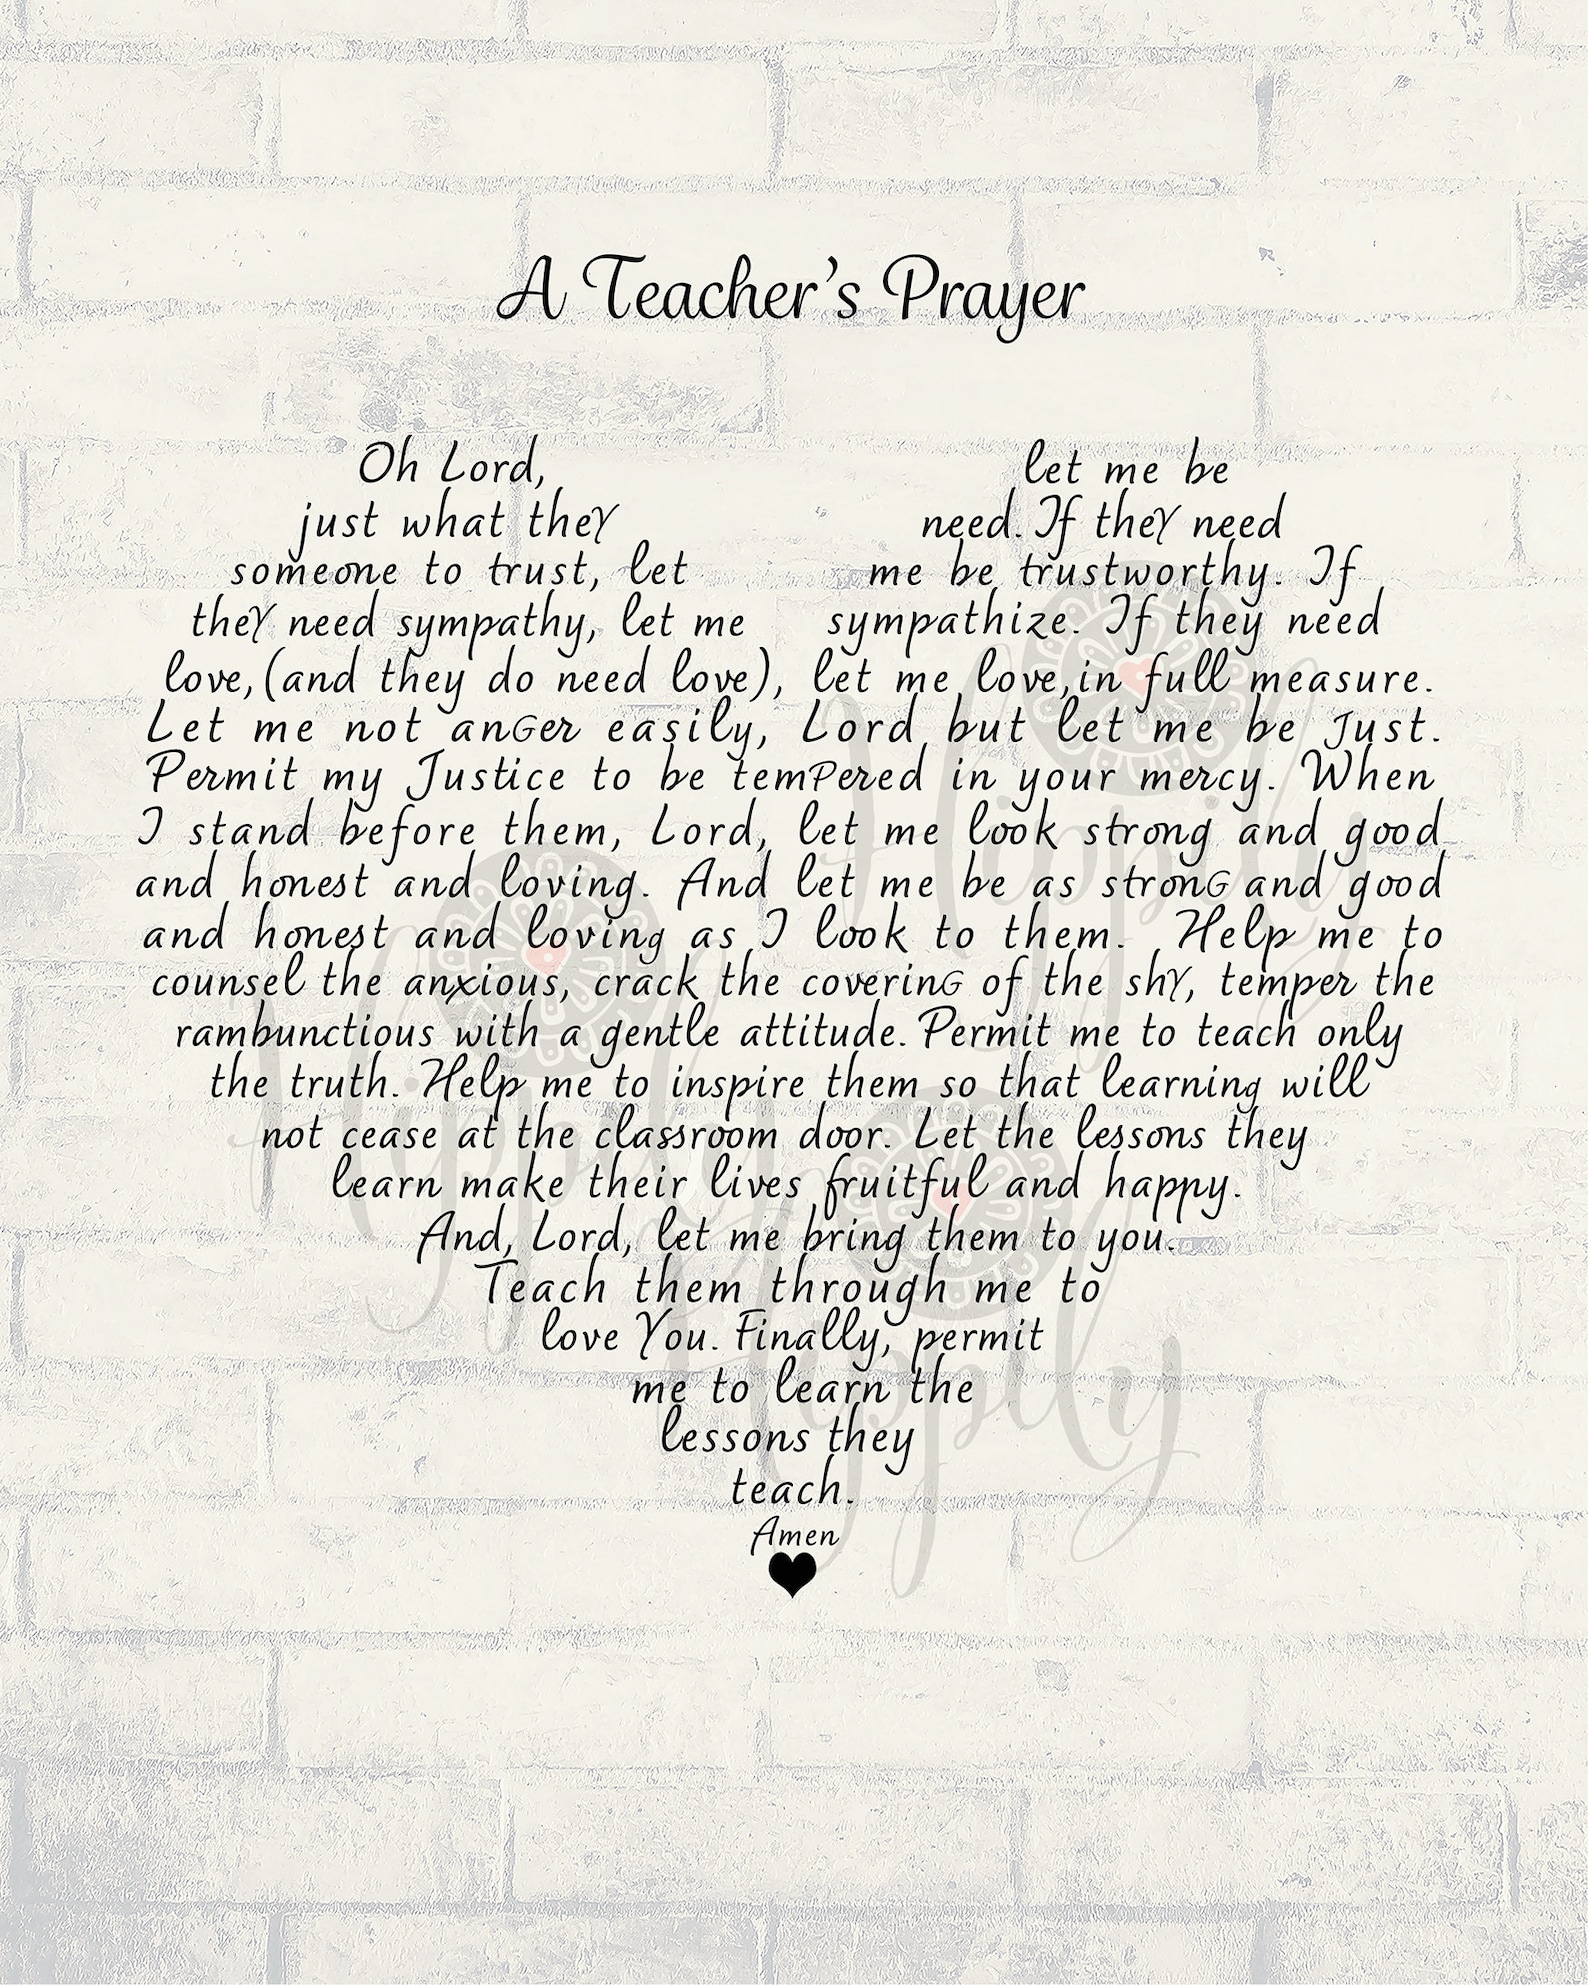 A Teacher's Prayer
Oh Lord, let me be
just what they need. If they need
someone to trust, let me be trustworthy. If
they need sympathy, let me sympathize. If they need
love, (and they do need love), let me love, in full measure.
Let me not anger easily, Lord but let me be Just.
Permit my Justice to be temPered in your mercy. When
I stand before them, Lord, let me look strong and good
and honest and loving. And let me be as stronG and good
and honest and loving as I look to them. Help me to
counsel the anxious, crack the coverinG of the shY, temper the
rambunctious with a gentle attitude. Permit me to teach only
the truth. Help me to inspire them so that learning will
not cease at the classroom door. Let the lessons they
learn make their lives fruitful and happy.
And, Lord, let me bring them to you.
Teach them through me to
love You. Finally, permit
me to learn the
lessons they
teach.
Amen
Hippily
Hippily
Hippily